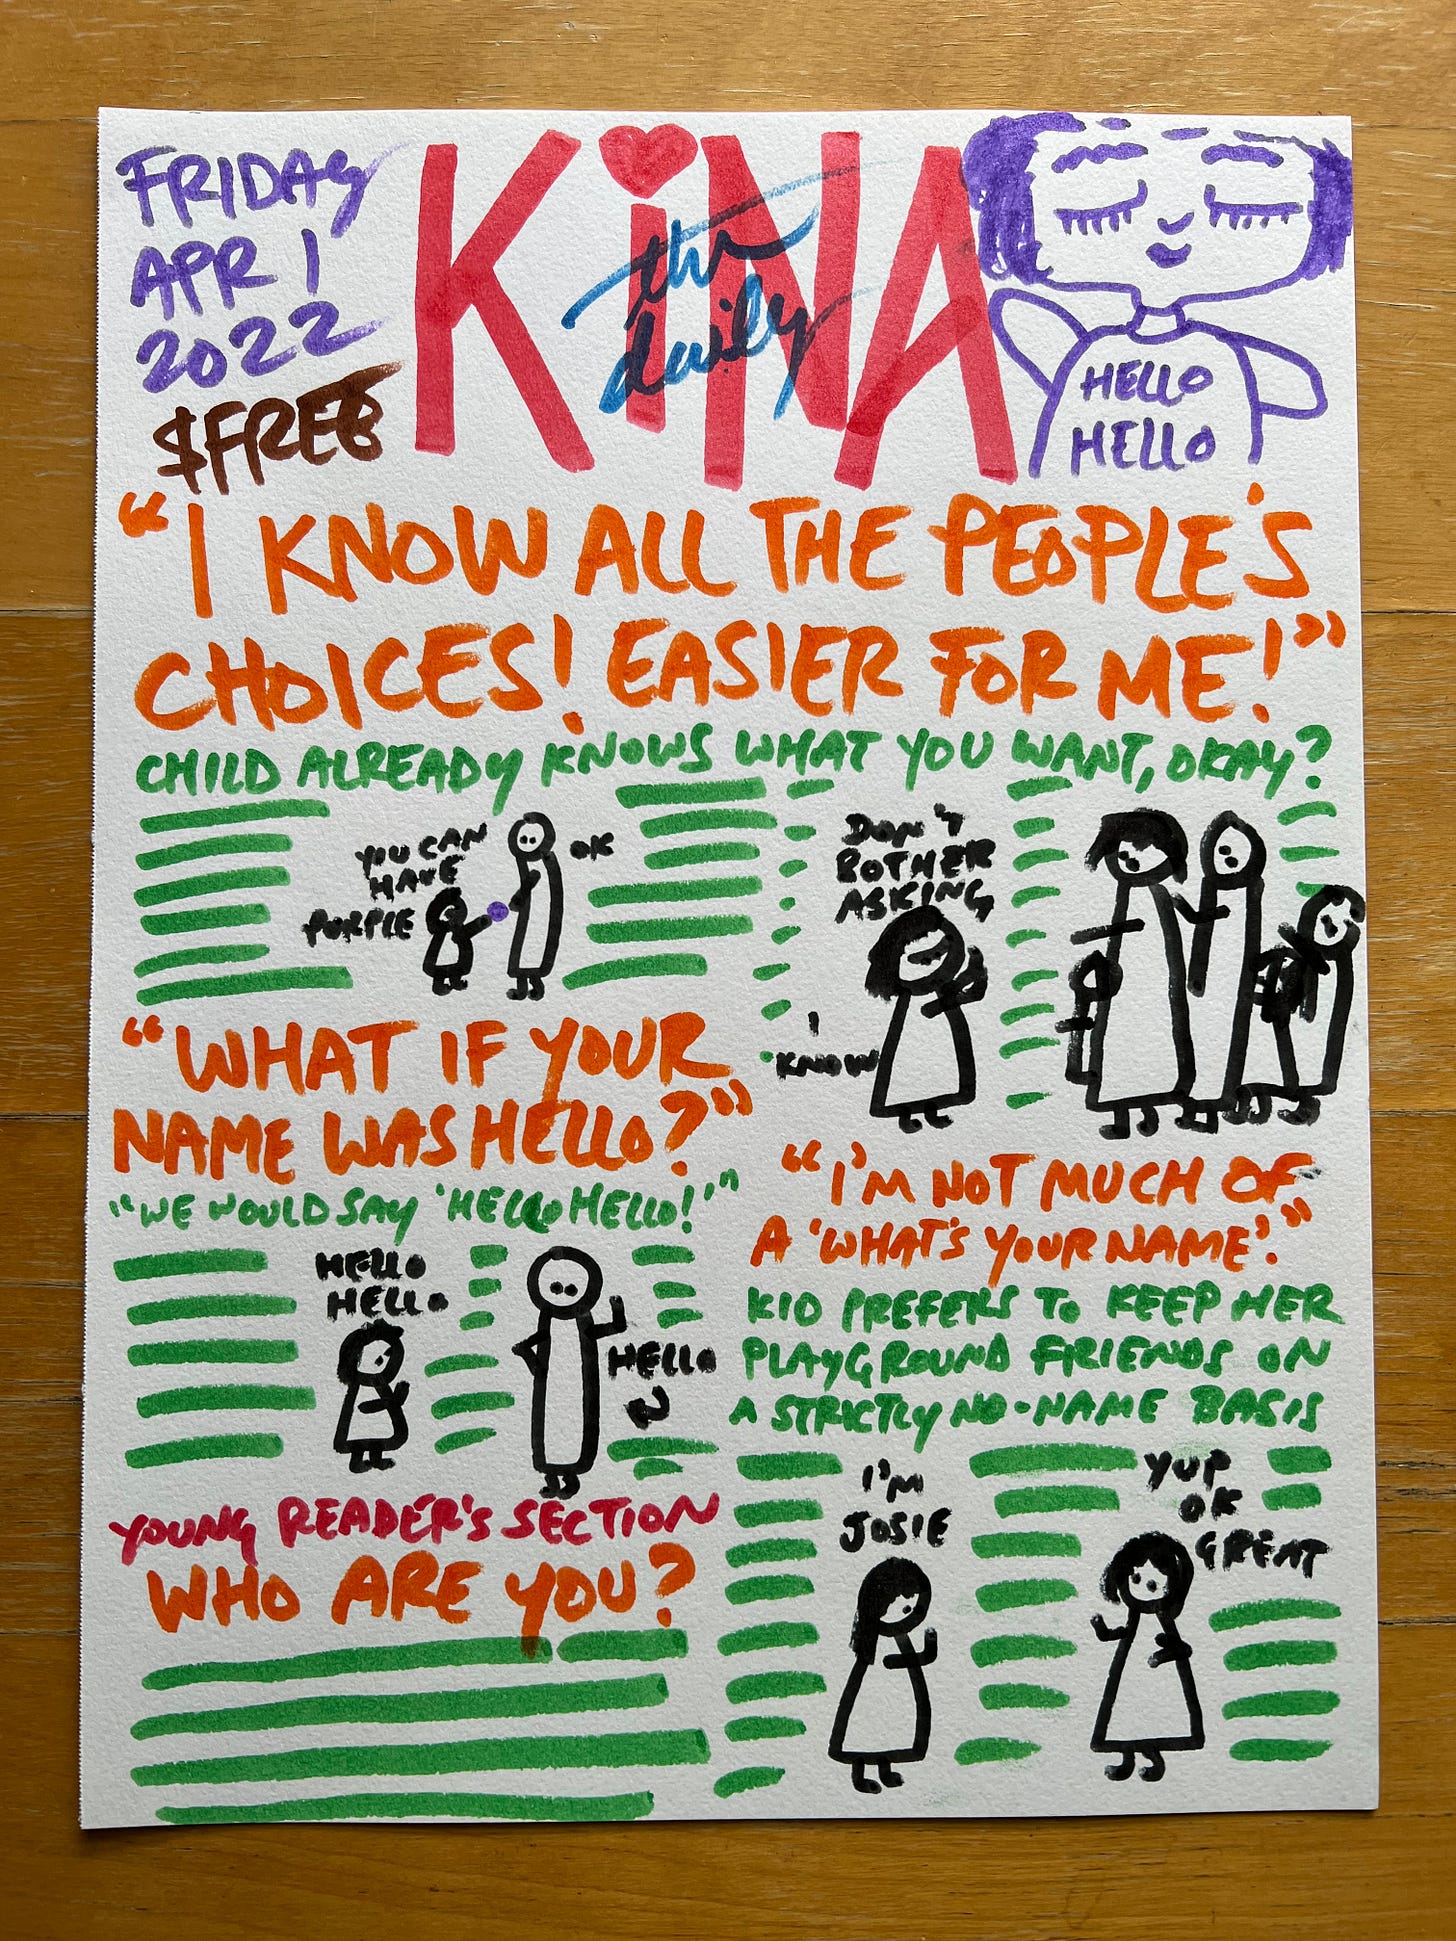 FRIDAY
APR 1
2022
$FREE
KiNA
the
daily
HELLO
HELLO
"I KNOW ALL THE PEOPLE'S
CHOICES! EASIER FOR ME!"
CHILD ALREADY KNOWS WHAT YOU WANT, OKAY?
YOU CAN
HAVE
PURPLE
OK
DON'T
BOTHER
ASKING
I
KNOW
"WHAT IF YOUR
NAME WAS HELLO?"
"WE WOULD SAY 'HELLO HELLO!'"
HELLO
HELLO
HELLO
"I'M NOT MUCH OF
A 'WHAT'S YOUR NAME'."
KID PREFERS TO KEEP HER
PLAYGROUND FRIENDS ON
A STRICTLY NO-NAME BASIS
I'M
JOSIE
YUP
OK
GREAT
YOUNG READER'S SECTION
WHO ARE YOU?